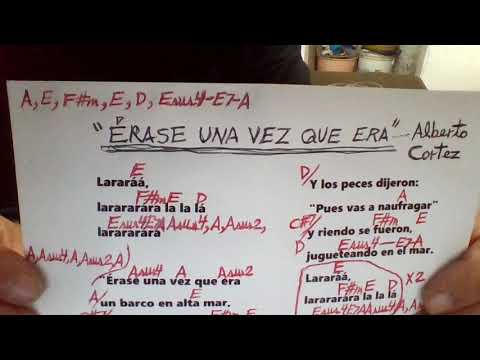 A, E, F#m, E, D, Esus4-E7-A
"ÉRASE UNA VEZ QUE ERA" - Alberto
Cortez
E
Lararáá,
F#m E D
larararara la la lá
Esus4 E7 A Asus4, A, Asus2,
larararará
A, Asus4, A, Asus2, A)
Asus4 A Asus2
"Érase una vez que éra
A/ E
un barco en alta mar,
D/
Y los peces dijeron:
A
"Pues vas a naufragar"
C#7/ F#m E
y riendo se fueron,
D Esus4-E7-A
jugueteando en el mar.
E
Lararáá,
F#m E D X2
larararara la la lá
Esus4 E7 A Asus4, A,